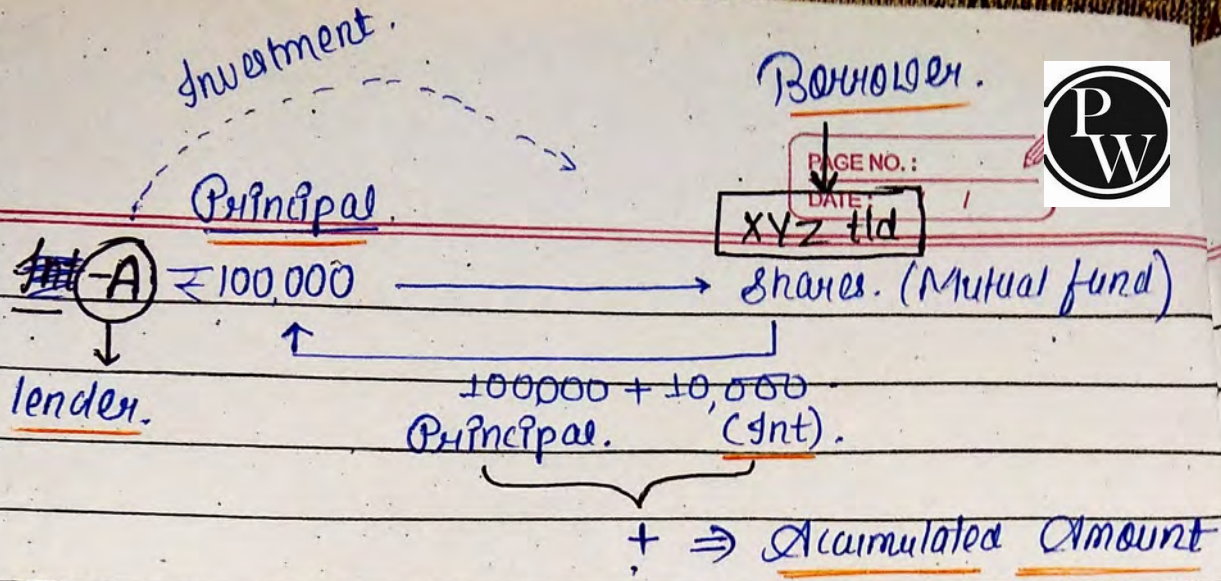 Investment.
Borrower.
PW
PAGE NO.:
DATE: /
Principal.
XYZ ltd
Int -A ₹100,000 → Shares. (Mutual fund)
lender.
100000 + 10,000
Principal. (Int).
+ ⇒ Accumulated Amount